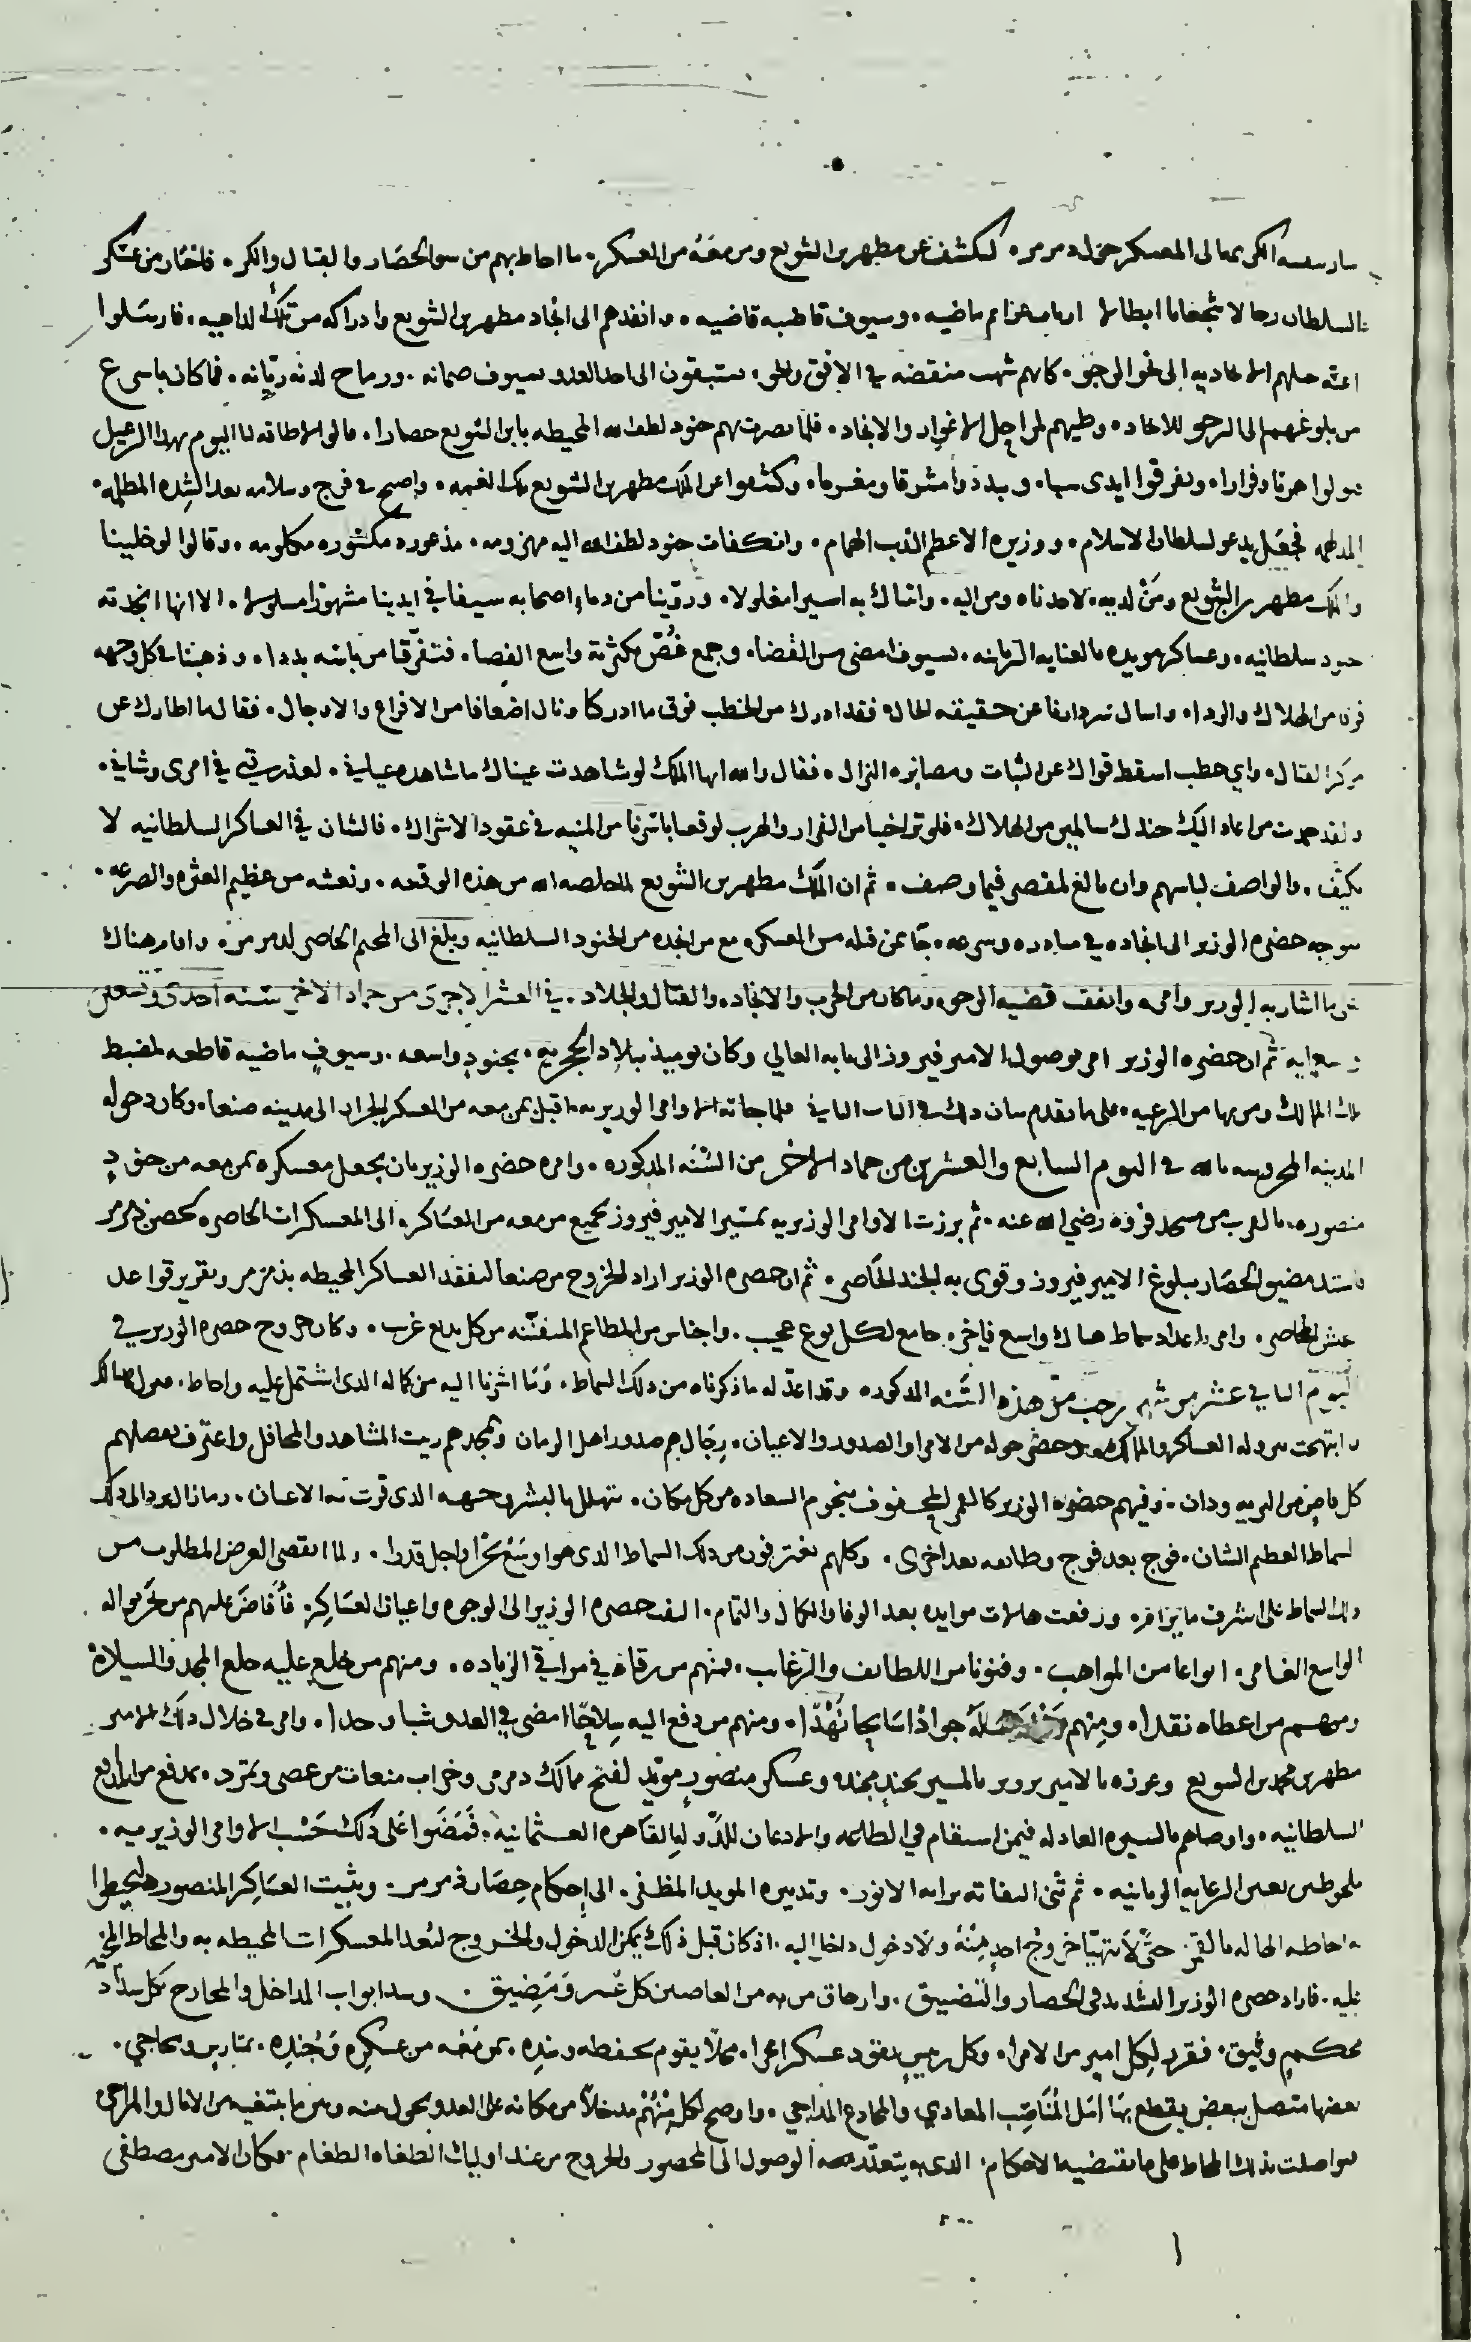 الى المعسكر حول ذمرمر. لكشف عن مطهر بن الشويع ومن معه من العسكر. ما احاط بهم من سو الحصار والقتال والكر. فاختار من عسكر
السلطان رجالا شجعانا ابطالا ارباب عزايم ماضيه. وسيوف قاضبه قاضيه. وانفدهم الى انجاد مطهر بن الشويع وادراكه من تلك الداهيه. فارسلوا
كانهم شهب منقضه في الافق. يستبقون الى اخذ العدو بسيوف ورماح لدنه. فما كان باسرع
من بلوغهم الى الرجو للانجاد. وطيهم لمراحل الاغوار والانجاد. فلما بصرت بهم جنود لطف الله المحيطه بابن الشويع حصارا. قالوا لا طاقه لنا اليوم بهذا الرعيل
فولوا فرقا وفرارا. وتفرقوا ايدي سبا. وبددوا مشرقا ومغربا. وكشفوا عن الملك مطهر بن الشويع تلك الغمه. واصبح في فرج وسلامه بعد الشده المظلمه
المدلهمه فجعل يدعو لسلطان الاسلام. ووزيره الاعظم الندب الهمام. وانكفات جنود لطف الله اليه مهزومه. مذعوره مكلومه. وقالوا لو خلينا
والملك مطهر بن الشويع ومن لديه. لاخذناه ومن اليه. واتيناك به اسيرا مغلولا. وروينا من دماء اصحابه سيفا في ايدينا مشهورا مسلولا. الا انها انجدته
جنود سلطانيه. وعساكر مويده بالعنايه الربانيه. بسيوف امضى من القضا. وجمع غص بكثرته واسع الفضا. فتفرقنا من باسه بددا. وذهبنا في كل وجهه
فرقا من الهلاك والردا. فقد ادرك من الخطب فوق ما ادركنا ونال اضعافا من الافزاع والاوجال. فقال ما اطارك عن
مركز القتال. واي خطب اسقط قواك عن الثبات ومصابره النزال. فقال والله ايها الملك لو شاهدت عيناك ما شاهده عياني. لعذرتني في امري وشاني.
ولقد حمدت من اعاد اليك جندك سالمين من الهلاك. فلو تراخينا من الفرار والهرب لوقعنا باسرنا من المنيه في عقود الاشراك. فالشان في العساكر السلطانيه لا
يكيف. والواصف لباسهم وان بالغ لمقصر فيما وصف. ثم ان الملك مطهر بن الشويع لما خلصه الله من هذه الوقعه. ونعشه من عظيم العثره والصرعه.
بتوجه حضره الوزير الى انجاده في مبادره وسرعه. جا بمن قبله من العسكر. مع من انجده من الجنود السلطانيه وبلغ الى المخيم المحاصر لذمرمر. واقام هناك
على ما اشار به الوزير وامر. واتفقت قضيه الرجو. وما كان من الحرب والانجاد. والقتال والجلاد. في العشر الاخرى من جماد الاخر سنه احدى وتسعين
وتسعمايه ثم ان حضره الوزير امر بوصول الامير فيروز الى بابه العالي وكان يوميذ ببلاد الحجريه. بجنود واسعه. وسيوف ماضيه قاطعه لضبط
تلك الممالك ومن بها من الرعيه. على ما تقدم بيان ذلك في الباب الثاني فلما جاته الاوامر الوزيريه اقبل بمن معه من العسكر الجرار الى مدينه صنعا. وكان دخوله
المدينه المحروسه بالله في اليوم السابع والعشرين من جماد الاخر من السنه المذكوره. وامره حضره الوزير بان يجعل معسكره بمن معه من جنود
منصوره. بالقرب من مسجد فروه رضي الله عنه. ثم برزت الاوامر الوزيريه بمسير الامير فيروز بجميع من معه من العساكر. الى المعسكرات المحاصره لحصن ذمرمر
فاشتد مضيق الحصار ببلوغ الامير فيروز وقوى به الجند المحاصر. ثم ان حضره الوزير اراد الخروج من صنعا لتفقد العساكر المحيطه بذمرمر وتقرير قواعد
المحاصر. وامر باعداد سماط هناك واسع فاخر. جامع لكل نوع عجيب. واجناس من المطاعم المتفننه من كل بديع غريب. وكان خروج حضره الوزير في
اليوم الثاني عشر من شهر رجب من هذه السنه المذكوره وقد اعد له ما ذكرناه من ذلك السماط. وما اشرنا اليه من كماله الذي اشتمل عليه واحاط.
وابتهجت بنزوله العساكر والممالك وحضر حوله من الامرا والصدور والاعيان. رجال هم صدور اهل الزمان وبمجدهم زينت المشاهد والمحافل واعترف بفضلهم
كل قاص من البريه ودان. وفيهم حضره الوزير كالقمر المحفوف بنجوم السعاده من كل مكان. يتهلل بالبشر وجهه الذي قرت به الاعيان. وما زال يرد الى ذلك
السماط العظيم الشان. فوج بعد فوج وطايفه بعد اخرى. وكلهم يغترفون من ذلك السماط الذي هو اوسع بحرا واجل قدرا. ولما انقضى الغرض المطلوب من
ذلك السماط على اشرف ما يرام. ورفعت موايده بعد الوفا والكمال والتمام. التفت حضره الوزير الى الوجوه واعيان العساكر. فافاض عليهم من بحر نواله
الواسع الغامر. انواعا من المواهب. وفنونا من اللطايف والرغايب. فمنهم من رقاه في مراقي الزياده. ومنهم من خلع عليه خلع المجد والسياده
ومنهم من اعطاه نقدا. ومنهم جوادا سابحا نهدا. ومنهم من دفع اليه سلاحا امضى في العدو شبا وحدا. وامر في خلال ذلك الامير
مطهر بن محمد بن الشويع وعززه بالامير بالمسير بجند مجنده وعسكر منصور مؤيد لفتح ممالك ذمرمر وخراب منعات من عصى وتمرد. بمدفع من المدافع
السلطانيه. واوصاهم بالسيره العادله فيمن استقام في الطاعه والاذعان للدوله القاهره العثمانيه. فمضوا على ذلك حسب الاوامر الوزيريه.
ملحوظين بعين الرعايه الربانيه. ثم ثنى التفاته برايه الانور. وتدبيره المويد المظفر. الى إحكام حصار ذمرمر. وتثبيت العساكر المنصوره المحيطه
احاطه الهاله بالقمر. حتى لا يتهيا خروج احد منه ولا دخول داخل اليه. اذ كان قبل ذلك يمكن الدخول والخروج لبعد المعسكرات المحيطه به والمحاط
عليه. فاراد حضره الوزير التشديد في الحصار والتضييق. وارهاق من به من العاصين كل عسر ومضيق. وسد ابواب المداخل والمخارج بكل سداد
محكم وثيق. فقرر لكل امير من الامرا. وكل رييس يقود عسكرا مجرا. محلا يقوم بحفظه وسده. بمن معه من عسكره وجنده. بمتاريس ومحاجر.
بعضها متصل ببعض يقطع بها امل المناصب المعادي والمخادع المداجي. واوضح لكل منهم مدخلا من مكانه على العدو يحول بينه وبين ما يبتغيه من الامال والمراجي
فتواصلت تلك المحاط على ما تقتضيه الاحكام. الذي يتعذر معه الوصول الى المحصور والخروج من عند اوليك الطغاه الطغام. فكان الامير مصطفى